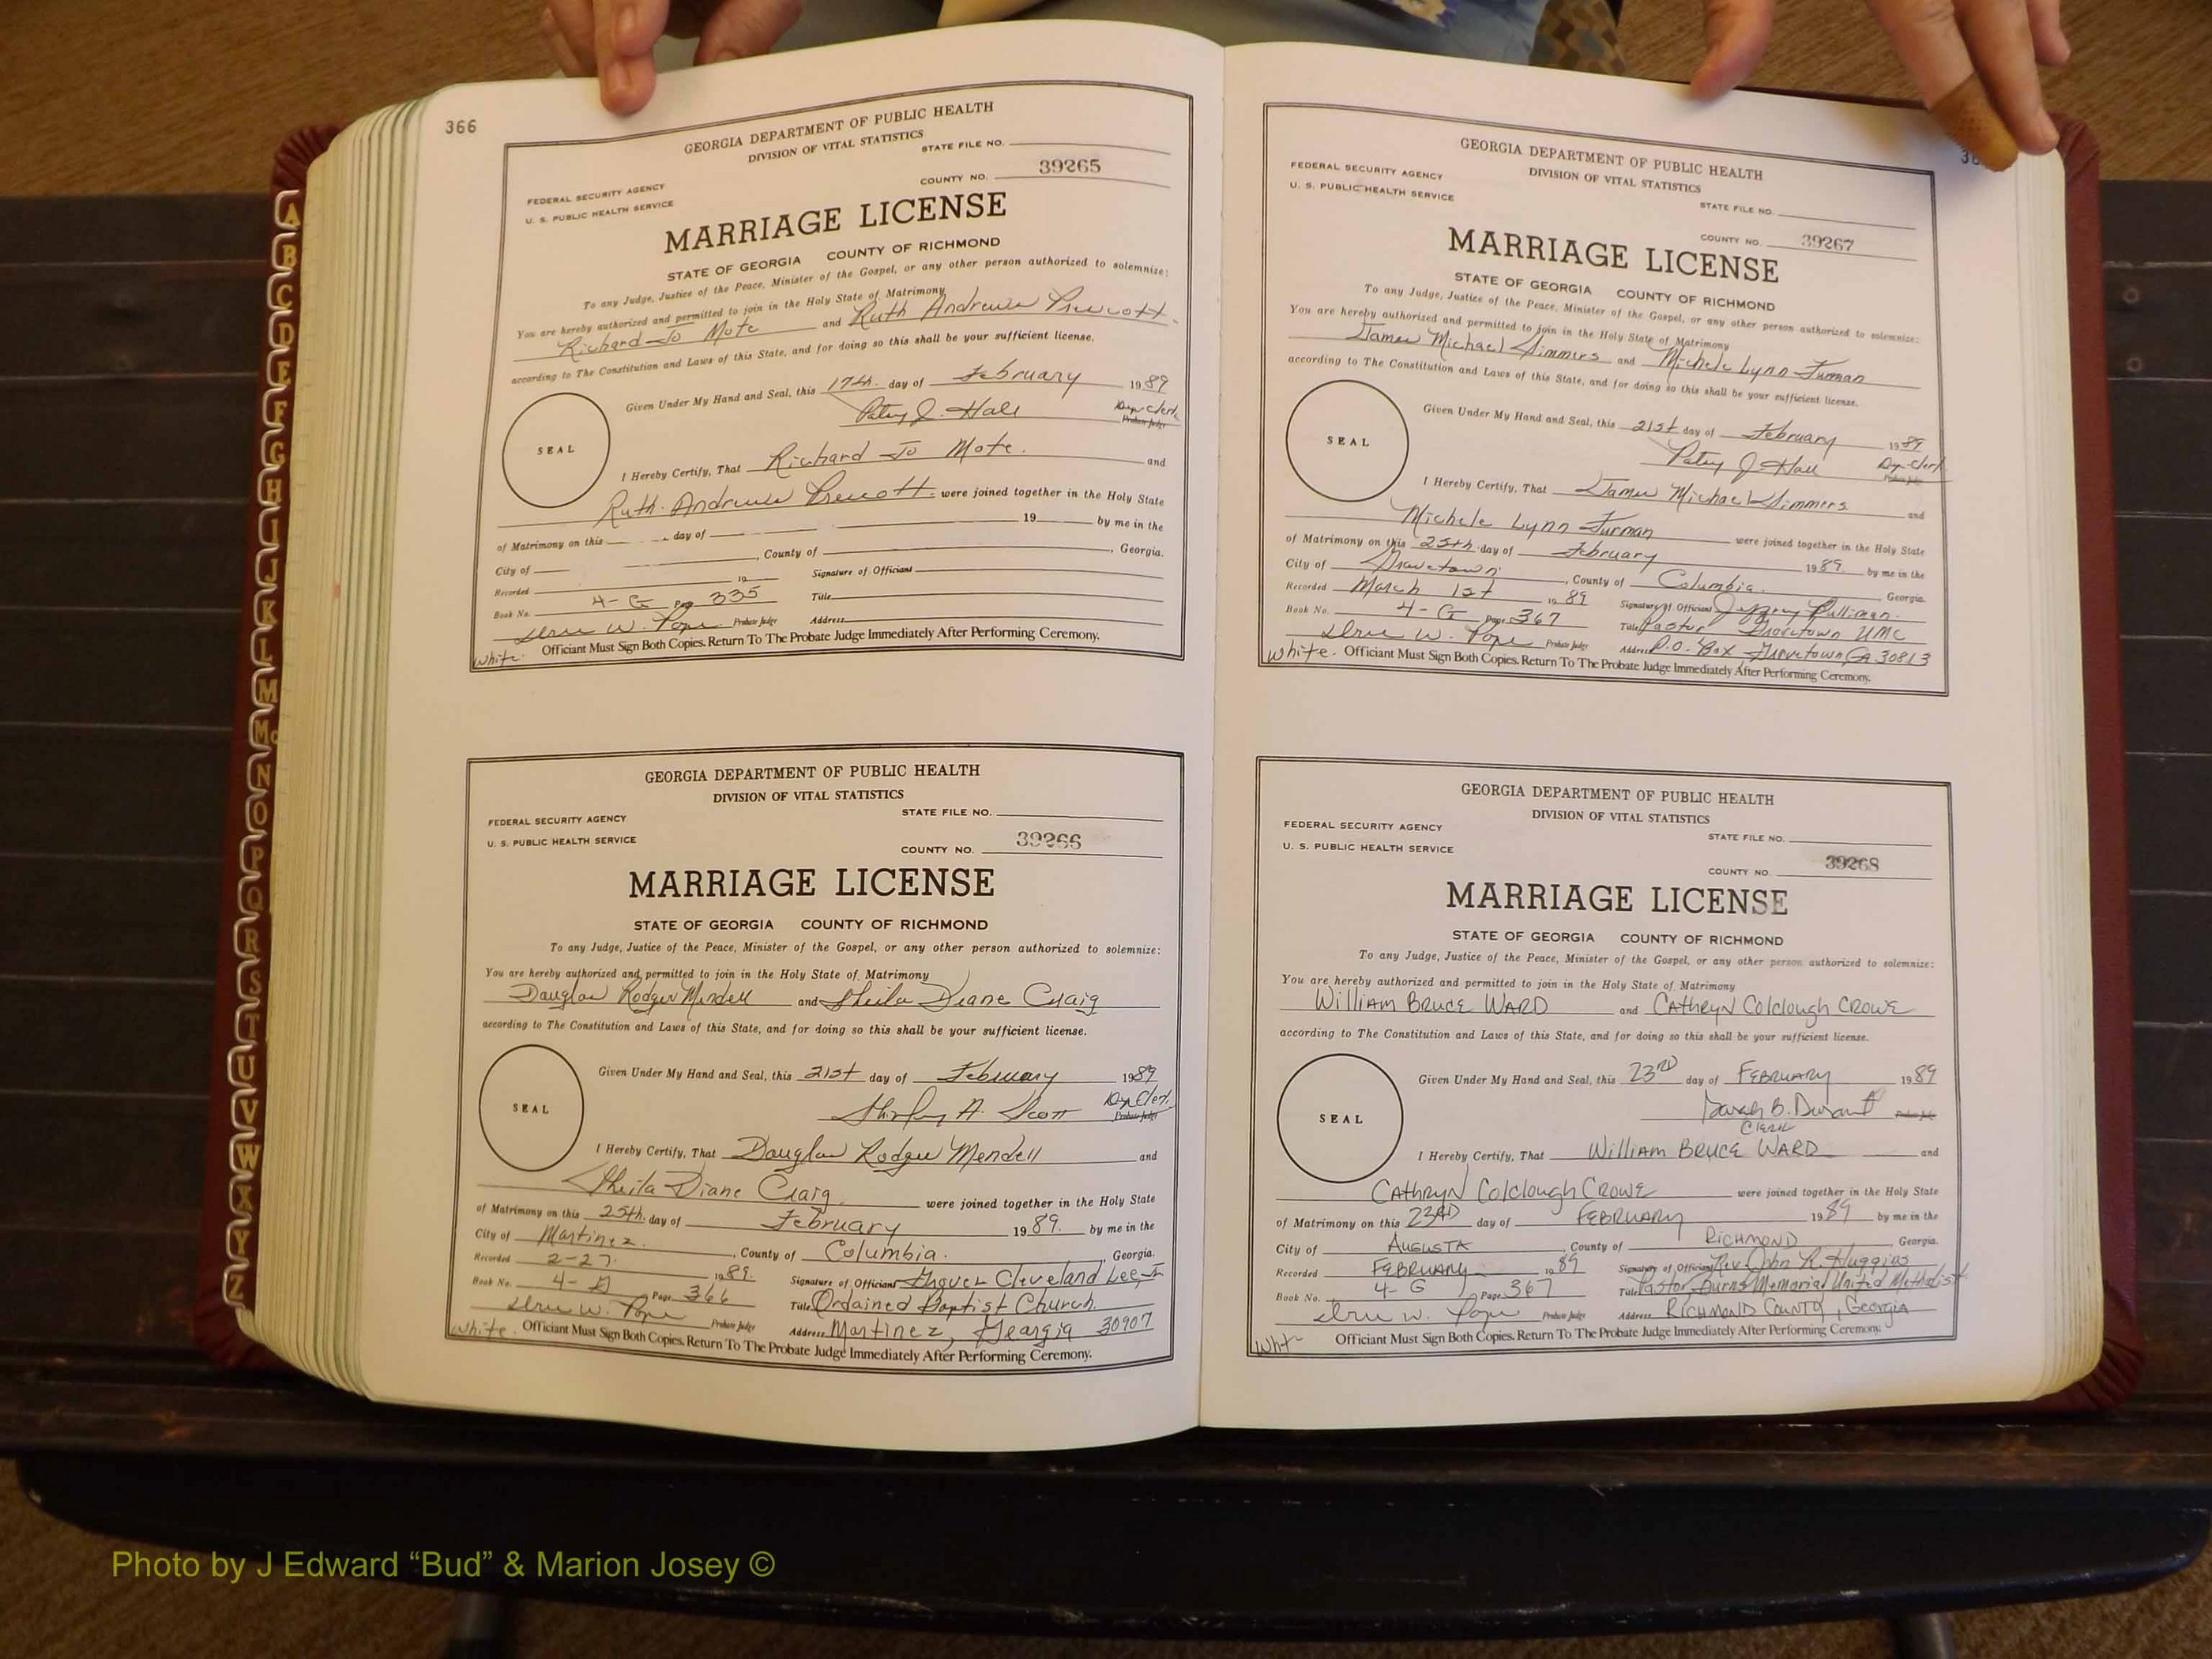 366
GEORGIA DEPARTMENT OF PUBLIC HEALTH
DIVISION OF VITAL STATISTICS
STATE FILE NO.
FEDERAL SECURITY AGENCY
U. S. PUBLIC HEALTH SERVICE
COUNTY NO. 39265
MARRIAGE LICENSE
STATE OF GEORGIA COUNTY OF RICHMOND
To any Judge, Justice of the Peace, Minister of the Gospel, or any other person authorized to solemnize:
You are hereby authorized and permitted to join in the Holy State of Matrimony
Richard Jo Mote and Ruth Andrews Prescott
according to The Constitution and Laws of this State, and for doing so this shall be your sufficient license.
Given Under My Hand and Seal, this 17th day of February 1989
Patsy J. Hall Dep. Clerk
Probate Judge
SEAL
I Hereby Certify, That Richard Jo Mote and
Ruth Andrews Prescott were joined together in the Holy State
of Matrimony on this day of 19 by me in the
City of , County of , Georgia.
Recorded 19 Signature of Officiant
Book No. 4-G Page 335 Title
Probate Judge Address
White. Officiant Must Sign Both Copies. Return To The Probate Judge Immediately After Performing Ceremony.
GEORGIA DEPARTMENT OF PUBLIC HEALTH
DIVISION OF VITAL STATISTICS
STATE FILE NO.
FEDERAL SECURITY AGENCY
U. S. PUBLIC HEALTH SERVICE
COUNTY NO. 39266
MARRIAGE LICENSE
STATE OF GEORGIA COUNTY OF RICHMOND
To any Judge, Justice of the Peace, Minister of the Gospel, or any other person authorized to solemnize:
You are hereby authorized and permitted to join in the Holy State of Matrimony
Douglas Rodger Mendell and Sheila Diane Craig
according to The Constitution and Laws of this State, and for doing so this shall be your sufficient license.
Given Under My Hand and Seal, this 21st day of February 1989
Shirley A. Scott Dep. Clerk
Probate Judge
SEAL
I Hereby Certify, That Douglas Rodger Mendell and
Sheila Diane Craig were joined together in the Holy State
of Matrimony on this 25th day of February 1989. by me in the
City of Martinez , County of Columbia , Georgia.
Recorded 2-27 1989. Signature of Officiant Cleveland Lee
Book No. 4- Page 366 Title Ordained Baptist Church
Probate Judge Address Martinez, Georgia 30907
White. Officiant Must Sign Both Copies. Return To The Probate Judge Immediately After Performing Ceremony.
36
GEORGIA DEPARTMENT OF PUBLIC HEALTH
DIVISION OF VITAL STATISTICS
FEDERAL SECURITY AGENCY
U. S. PUBLIC HEALTH SERVICE
STATE FILE NO.
COUNTY NO. 39267
MARRIAGE LICENSE
STATE OF GEORGIA COUNTY OF RICHMOND
To any Judge, Justice of the Peace, Minister of the Gospel, or any other person authorized to solemnize:
You are hereby authorized and permitted to join in the Holy State of Matrimony
James Michael Simmers and Michele Lynn Furman
according to The Constitution and Laws of this State, and for doing so this shall be your sufficient license.
Given Under My Hand and Seal, this 21st day of February 1989
Patsy J. Hall Dep. Clerk
Probate Judge
SEAL
I Hereby Certify, That James Michael Simmers and
Michele Lynn Furman were joined together in the Holy State
of Matrimony on this 25th day of February 1989. by me in the
City of Grovetown , County of Columbia. Georgia
Recorded March 1st 1989 Signature of Officiant Jeffrey
Book No. 4-G Page 367 Title Pastor Grovetown UMC
Probate Judge Address P.O. Box Grovetown GA 30813
White. Officiant Must Sign Both Copies. Return To The Probate Judge Immediately After Performing Ceremony.
GEORGIA DEPARTMENT OF PUBLIC HEALTH
DIVISION OF VITAL STATISTICS
FEDERAL SECURITY AGENCY
U. S. PUBLIC HEALTH SERVICE
STATE FILE NO.
COUNTY NO. 39268
MARRIAGE LICENSE
STATE OF GEORGIA COUNTY OF RICHMOND
To any Judge, Justice of the Peace, Minister of the Gospel, or any other person authorized to solemnize:
You are hereby authorized and permitted to join in the Holy State of Matrimony
William Bruce WARD and CAthRyN Colclough CROWE
according to The Constitution and Laws of this State, and for doing so this shall be your sufficient license.
Given Under My Hand and Seal, this 23RD day of FEBRUARY 1989
B. Durant Probate Judge
Clerk
SEAL
I Hereby Certify, That William Bruce WARD and
CAthRyN Colclough CROWE were joined together in the Holy State
of Matrimony on this 23RD day of FEBRUARY 1989 by me in the
City of AUGUSTA , County of RICHMOND Georgia.
Recorded FEBRUARY 1989 Signature of Officiant Rev. John R. Huggins
Book No. 4-G Page 367 Title Pastor Burns Memorial United Methodist
Probate Judge Address RICHMOND COUNTY, Georgia
Whit Officiant Must Sign Both Copies. Return To The Probate Judge Immediately After Performing Ceremony.
A
B
C
D
E
F
G
H
I
J
K
L
M
Mc
N
O
P
Q
R
S
T
U
V
W
X
Y
Z
Photo by J Edward “Bud” & Marion Josey ©